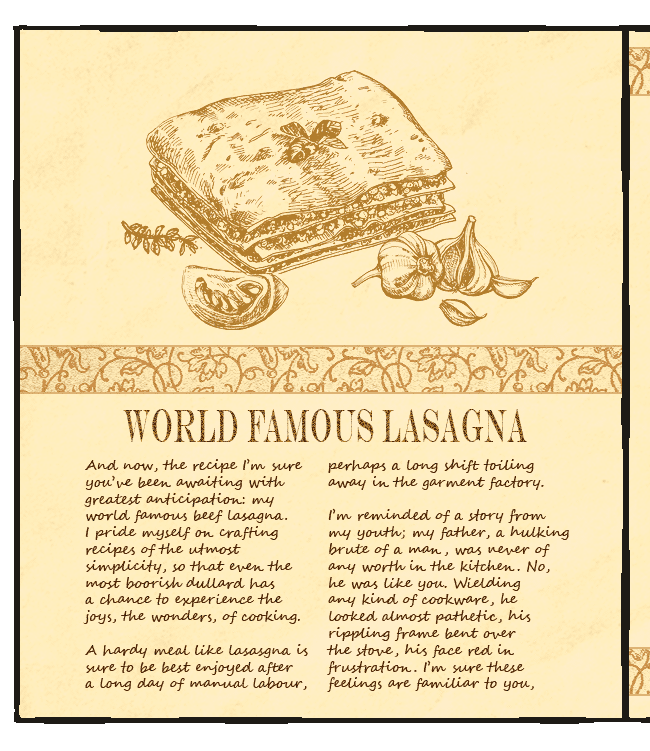 WORLD FAMOUS LASAGNA
And now, the recipe I'm sure
you've been awaiting with
greatest anticipation: my
world famous beef lasagna.
I pride myself on crafting
recipes of the utmost
simplicity, so that even the
most boorish dullard has
a chance to experience the
joys, the wonders, of cooking.
A hardy meal like lasasgna is
sure to be best enjoyed after
a long day of manual labour,
perhaps a long shift toiling
away in the garment factory.
I'm reminded of a story from
my youth; my father, a hulking
brute of a man, was never of
any worth in the kitchen. No,
he was like you. Wielding
any kind of cookware, he
looked almost pathetic, his
rippling frame bent over
the stove, his face red in
frustration. I'm sure these
feelings are familiar to you,